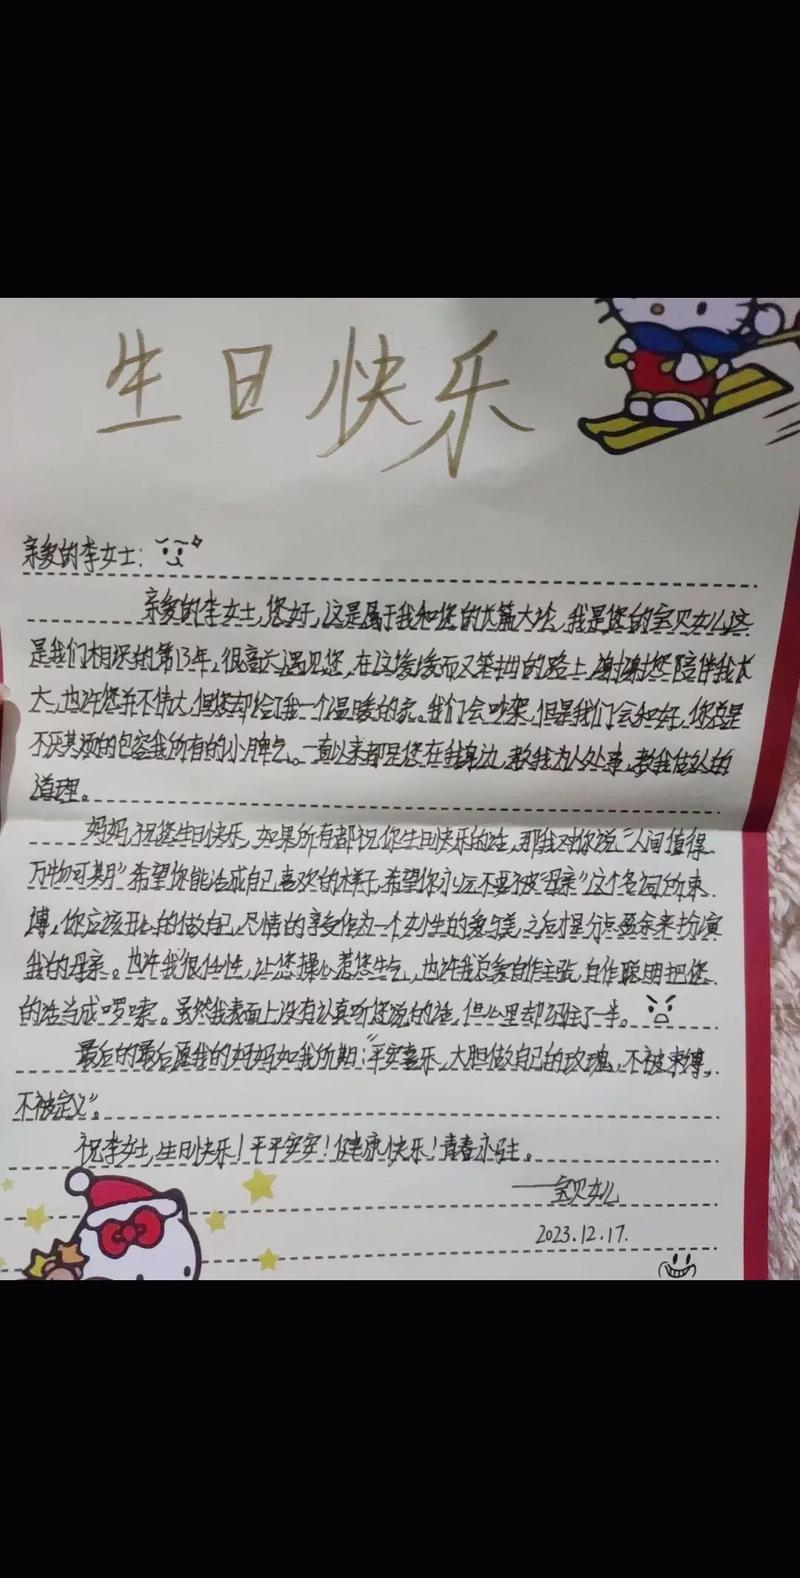 生日快乐
亲爱的李女士：
亲爱的李女士,您好,这是属于我和您的长篇大论,我是您的宝贝女儿,这
是我们相识的第13年,很高兴遇见您,在这漫漫而又笨拙的路上,谢谢您陪伴我长
大,也许您并不伟大,但您却给了我一个温暖的家。我们会吵架,但是我们会和好,你总是
不厌其烦的包容我所有的小脾气。一直以来都是您在我身边,教我为人处事,教我做人的
道理。
妈妈,祝您生日快乐,如果所有都祝你生日快乐的话,那我对你说“人间值得
万物可期”希望你能活成自己喜欢的样子,希望你永远不要被“母亲”这个名词所束
缚,你应该开心的做自己,尽情的享受作为一个女性的爱与美,之后才是分点盈余来扮演
我的母亲。也许我很任性,让您操心惹您生气,也许我总爱自作主张,自作聪明把您
的话当成啰嗦。虽然我表面上没有认真听您说的话,但心里却记住了一半。
最后的最后愿我的妈妈如我所期：“平安喜乐,大胆做自己的玫瑰,不被束缚,
不被定义”。
祝李女士,生日快乐！平平安安！健康快乐！青春永驻。
——宝贝女儿
2023.12.17.